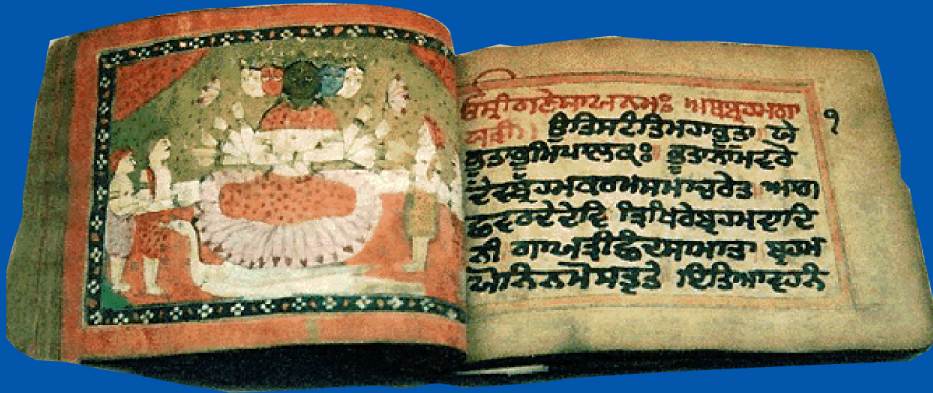 ਸ੍ਰੀ ਗਣੇਸਾਅ ਨਮਃ ਅਥ ਬ੍ਰਹਮਗਾ
ਉਤਿਸਟੰਤਿ ਮਹਾਭੂਤਾ ਯੇ
ਭੂਤਾ ਭੂਮਿਪਾਲਕਃ ਭੂਤਾਨਾਮਵਰੋ
ਬ੍ਰਹਮਕਰਮਸਮਾਚਰੇਤ ਆਗ
ਛਵਰਦੇ ਦੇਵਿ ਤ੍ਰਿਖਿਰੇ ਬ੍ਰਹਮਵਾਦਿ
ਨੀ ਗਾਅਤ੍ਰੀ ਛੰਦਸਾਮਾਤਾ ਬ੍ਰਹਮ
ਯੋਨਿ ਨਮੋਸਤੁਤੇ ਇਤਿਆਵਾਹਨਿ
੧